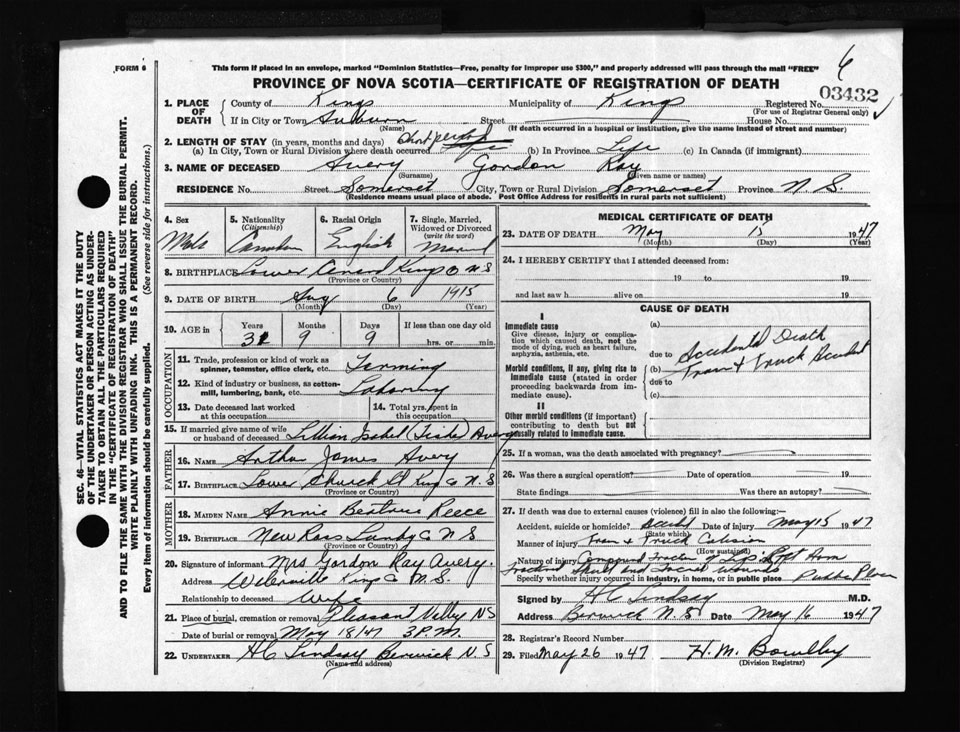 6
FORM 6
This form if placed in an envelope, marked "Dominion Statistics—Free, penalty for improper use $300," and properly addressed will pass through the mail "FREE"
PROVINCE OF NOVA SCOTIA—CERTIFICATE OF REGISTRATION OF DEATH
03432
SEC. 46—VITAL STATISTICS ACT MAKES IT THE DUTY
OF THE UNDERTAKER OR PERSON ACTING AS UNDER-
TAKER TO OBTAIN ALL THE PARTICULARS REQUIRED
IN THE "CERTIFICATE OF REGISTRATION OF DEATH"
AND TO FILE THE SAME WITH THE DIVISION REGISTRAR WHO SHALL ISSUE THE BURIAL PERMIT.
WRITE PLAINLY WITH UNFADING INK. THIS IS A PERMANENT RECORD.
Every item of information should be carefully supplied. (See reverse side for instructions.)
1. PLACE OF DEATH
County of Kings Municipality of Kings Registered No.
(For use of Registrar General only)
If in City or Town Auburn Street House No.
(Name) (If death occurred in a hospital or institution, give the name instead of street and number)
2. LENGTH OF STAY (in years, months and days)
(a) In City, Town or Rural Division where death occurred Short period (b) In Province Life (c) In Canada (if immigrant)
3. NAME OF DECEASED Avery Gordon Ray
(Surname) (Given name or names)
RESIDENCE No. Street Somerset City, Town or Rural Division Somerset Province N.S.
(Residence means usual place of abode. Post Office Address for residents in rural parts not sufficient)
4. Sex
Male
5. Nationality
(Citizenship)
Canadian
6. Racial Origin
English
7. Single, Married,
Widowed or Divorced
(write the word)
Married
8. BIRTHPLACE Lower Canard Kings Co N.S
(Province or Country)
9. DATE OF BIRTH Aug 6 1915
(Month) (Day) (Year)
10. AGE in
Years Months Days If less than one day old
31 9 9 hrs. or min.
OCCUPATION
11. Trade, profession or kind of work as
spinner, teamster, office clerk, etc. Farming
12. Kind of industry or business, as cotton-
mill, lumbering, bank, etc. Laboring
13. Date deceased last worked
at this occupation
14. Total yrs. spent in
this occupation
15. If married give name of wife
or husband of deceased Lillian Isabel Avery
FATHER
16. NAME Arthur James Avery
17. BIRTHPLACE Lower Church St Kings Co N.S
(Province or Country)
MOTHER
18. MAIDEN NAME Annie Beatrice Reece
19. BIRTHPLACE New Ross N S
(Province or Country)
20. Signature of informant Mrs Gordon Ray Avery.
Address Waterville Kings Co N.S.
Relationship to deceased Wife
21. Place of burial, cremation or removal Pleasant Valley NS
Date of burial or removal May 18/47 3 P.M.
22. UNDERTAKER H C Lindsay Berwick N.S
(Name and address)
MEDICAL CERTIFICATE OF DEATH
23. DATE OF DEATH May 15 1947
(Month) (Day) (Year)
24. I HEREBY CERTIFY that I attended deceased from:
19 to 19
and last saw h alive on 19
CAUSE OF DEATH
I
Immediate cause
Give disease, injury or complica-
tion which caused death, not the
mode of dying, such as heart failure,
asphyxia, asthenia, etc.
Morbid conditions, if any, giving rise to
immediate cause (stated in order
proceeding backwards from im-
mediate cause).
II
Other morbid conditions (if important)
contributing to death but not
causally related to immediate cause.
(a)
due to Accidental Death
(b) Train & Truck Accident
due to
(c)
25. If a woman, was the death associated with pregnancy?
26. Was there a surgical operation? Date of operation 19
State findings Was there an autopsy?
27. If death was due to external causes (violence) fill in also the following:—
Accident, suicide or homicide? Accident Date of injury May 15 1947
(State which)
Manner of injury Train & Truck Colision
(How sustained)
Nature of injury Compound Fracture of Arm
Fractured Skull and Wounds
Specify whether injury occurred in industry, in home, or in public place Public Place
Signed by H C Lindsay M.D.
Address Berwick N.S Date May 16 1947
28. Registrar's Record Number
29. Filed May 26 1947 H. M.
(Division Registrar)